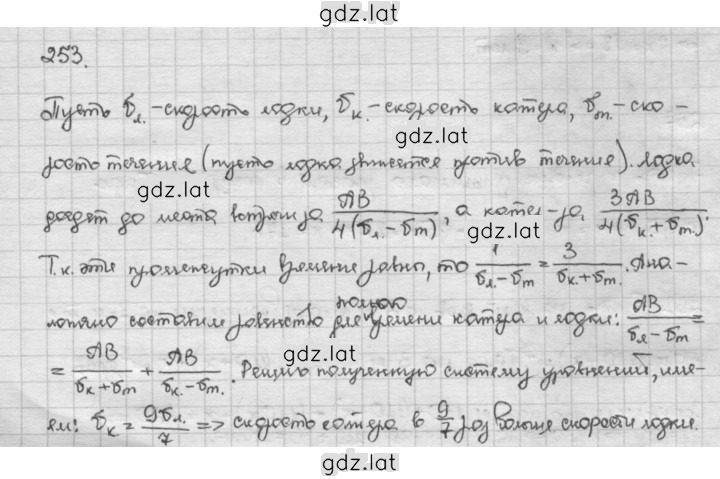 gdz.lat
253.
Пусть v_л.-скорость лодки, v_к.-скорость катера, v_т.-ско-
gdz.lat
рость течения (пусть лодка движется против течения). Лодка
gdz.lat
дойдет до места встречи за AB/4(v_л.-v_т), а катер-за 3AB/4(v_к.+v_т.).
Т.к. эти промежутки времени равны, то 1/v_л.-v_т = 3/v_к.+v_т. . Ана-
логично составим равенство для полного времени катера и лодки: AB/v_л-v_т =
gdz.lat
= AB/v_к+v_т + AB/v_к.-v_т. . Решив полученную систему уравнений, име-
ем: v_к = 9v_л./7 => скорость катера в 9/7 раз больше скорости лодки.
gdz.lat